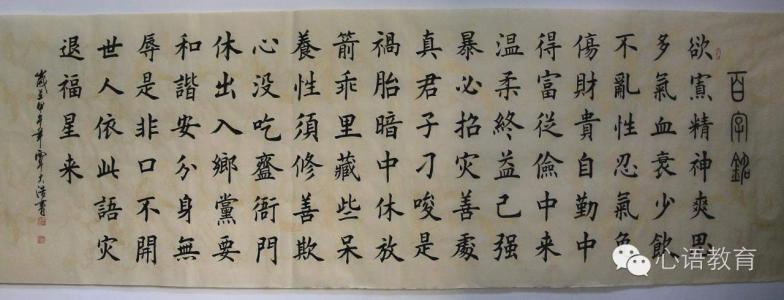 百字銘
欲寡精神爽思
多氣血衰少飲
不亂性忍氣免
傷財貴自勤中
得富從儉中来
温柔終益己强
暴必招灾善處
真君子刁唆是
禍胎暗中休放
箭乖里藏些呆
養性須修善欺
心没吃齋衙門
休出入鄉黨要
和諧安分身無
辱是非口不開
世人依此語灾
退福星来
心语教育